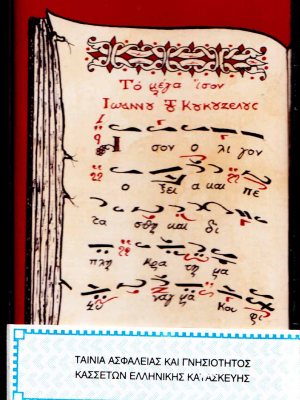 Τὸ μέγα ἴσον
Ἰωάννου τοῦ Κουκουζέλους
Ἴ σον ο λι γον
ο ξει α και πε
τα σθη και δι
πλη κρα τη μα
κου φι
ΤΑΙΝΙΑ ΑΣΦΑΛΕΙΑΣ ΚΑΙ ΓΝΗΣΙΟΤΗΤΟΣ
ΚΑΣΣΕΤΩΝ ΕΛΛΗΝΙΚΗΣ ΚΑΤΑΣΚΕΥΗΣ